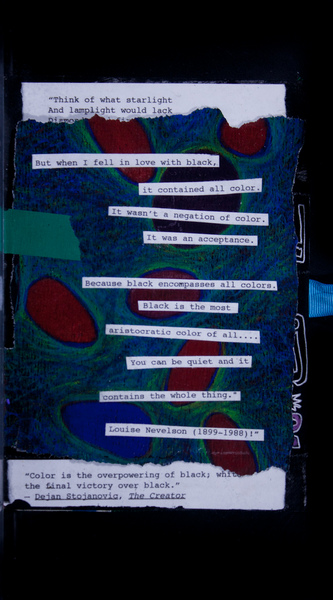 "Think of what starlight
And lamplight would lack
But when I fell in love with black,
it contained all color.
It wasn't a negation of color.
It was an acceptance.
Because black encompasses all colors.
Black is the most
aristocratic color of all....
You can be quiet and it
contains the whole thing."
Louise Nevelson (1899-1988)!"
"Color is the overpowering of black; white
the final victory over black."
— Dejan Stojanovic, The Creator